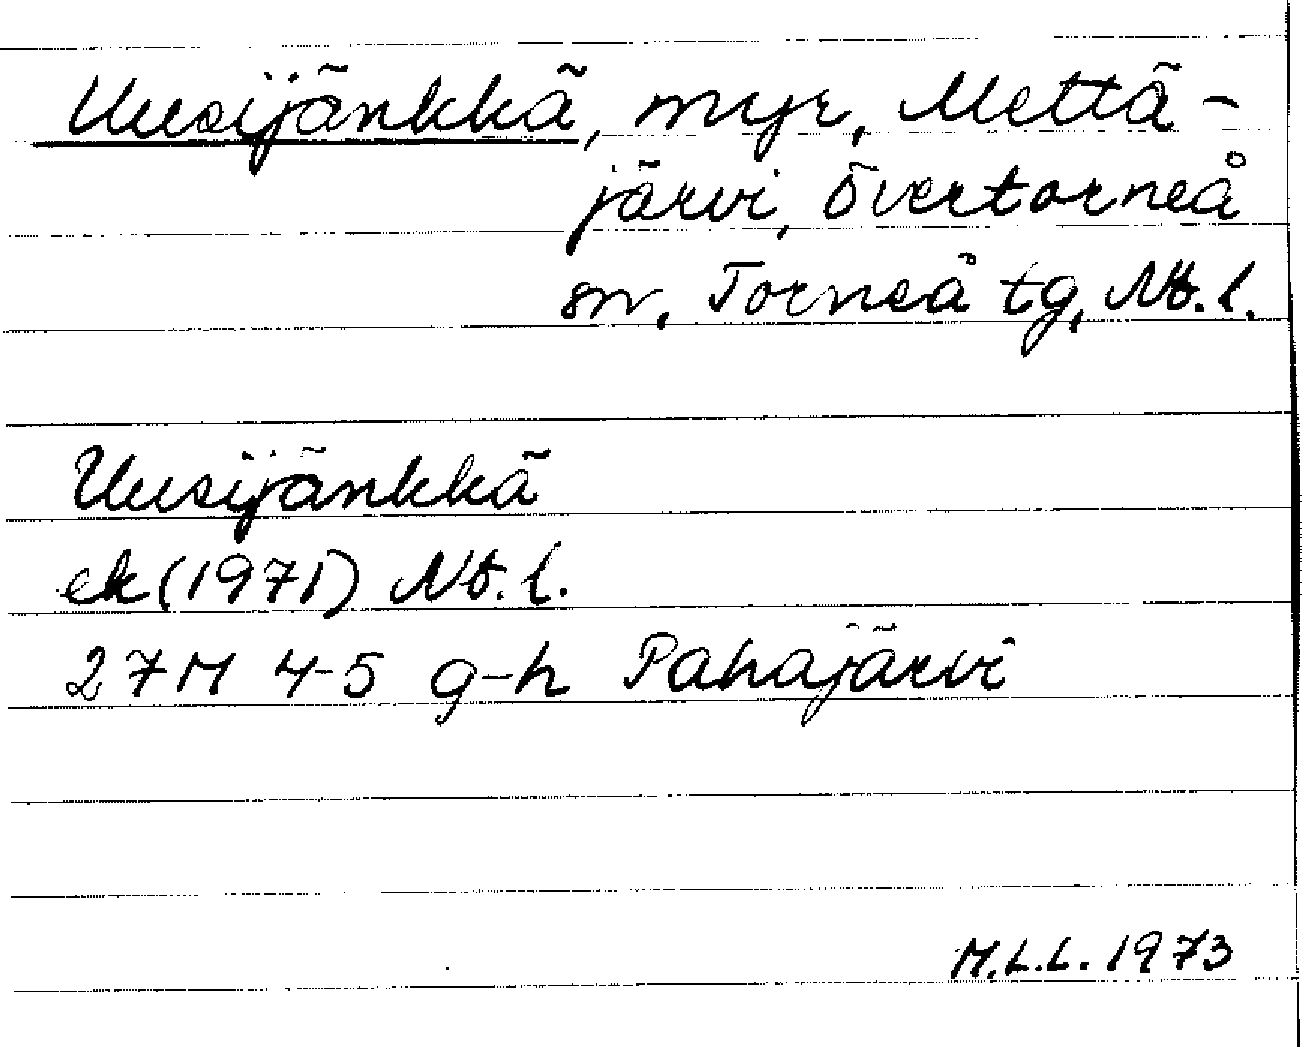 Uusijänkkä, myr, Mettä-
järvi, Övertorneå
sn, Torneå tg, Nb. l.
Uusijänkkä
ek (1971) Nb. l.
27M 4-5 g-h Pahajärvi
M.L.L. 1973